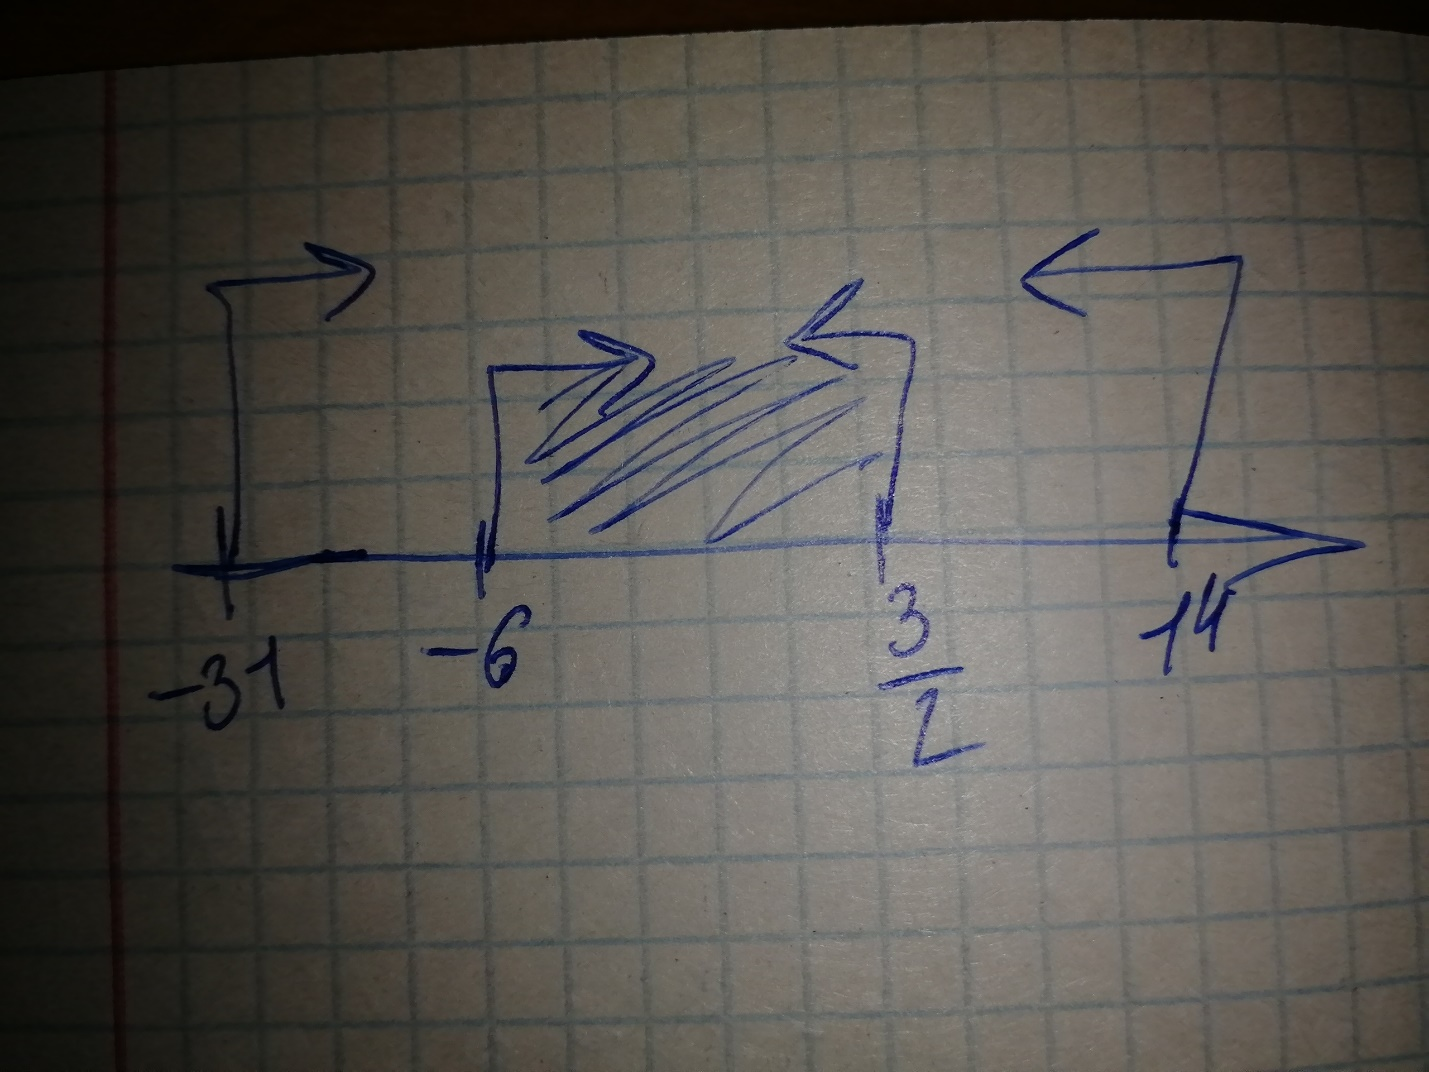 -31 -6 3/2 14